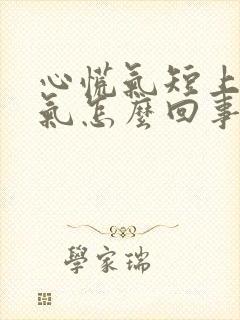 心慌氣短上
氣怎麼回事
學家瑞